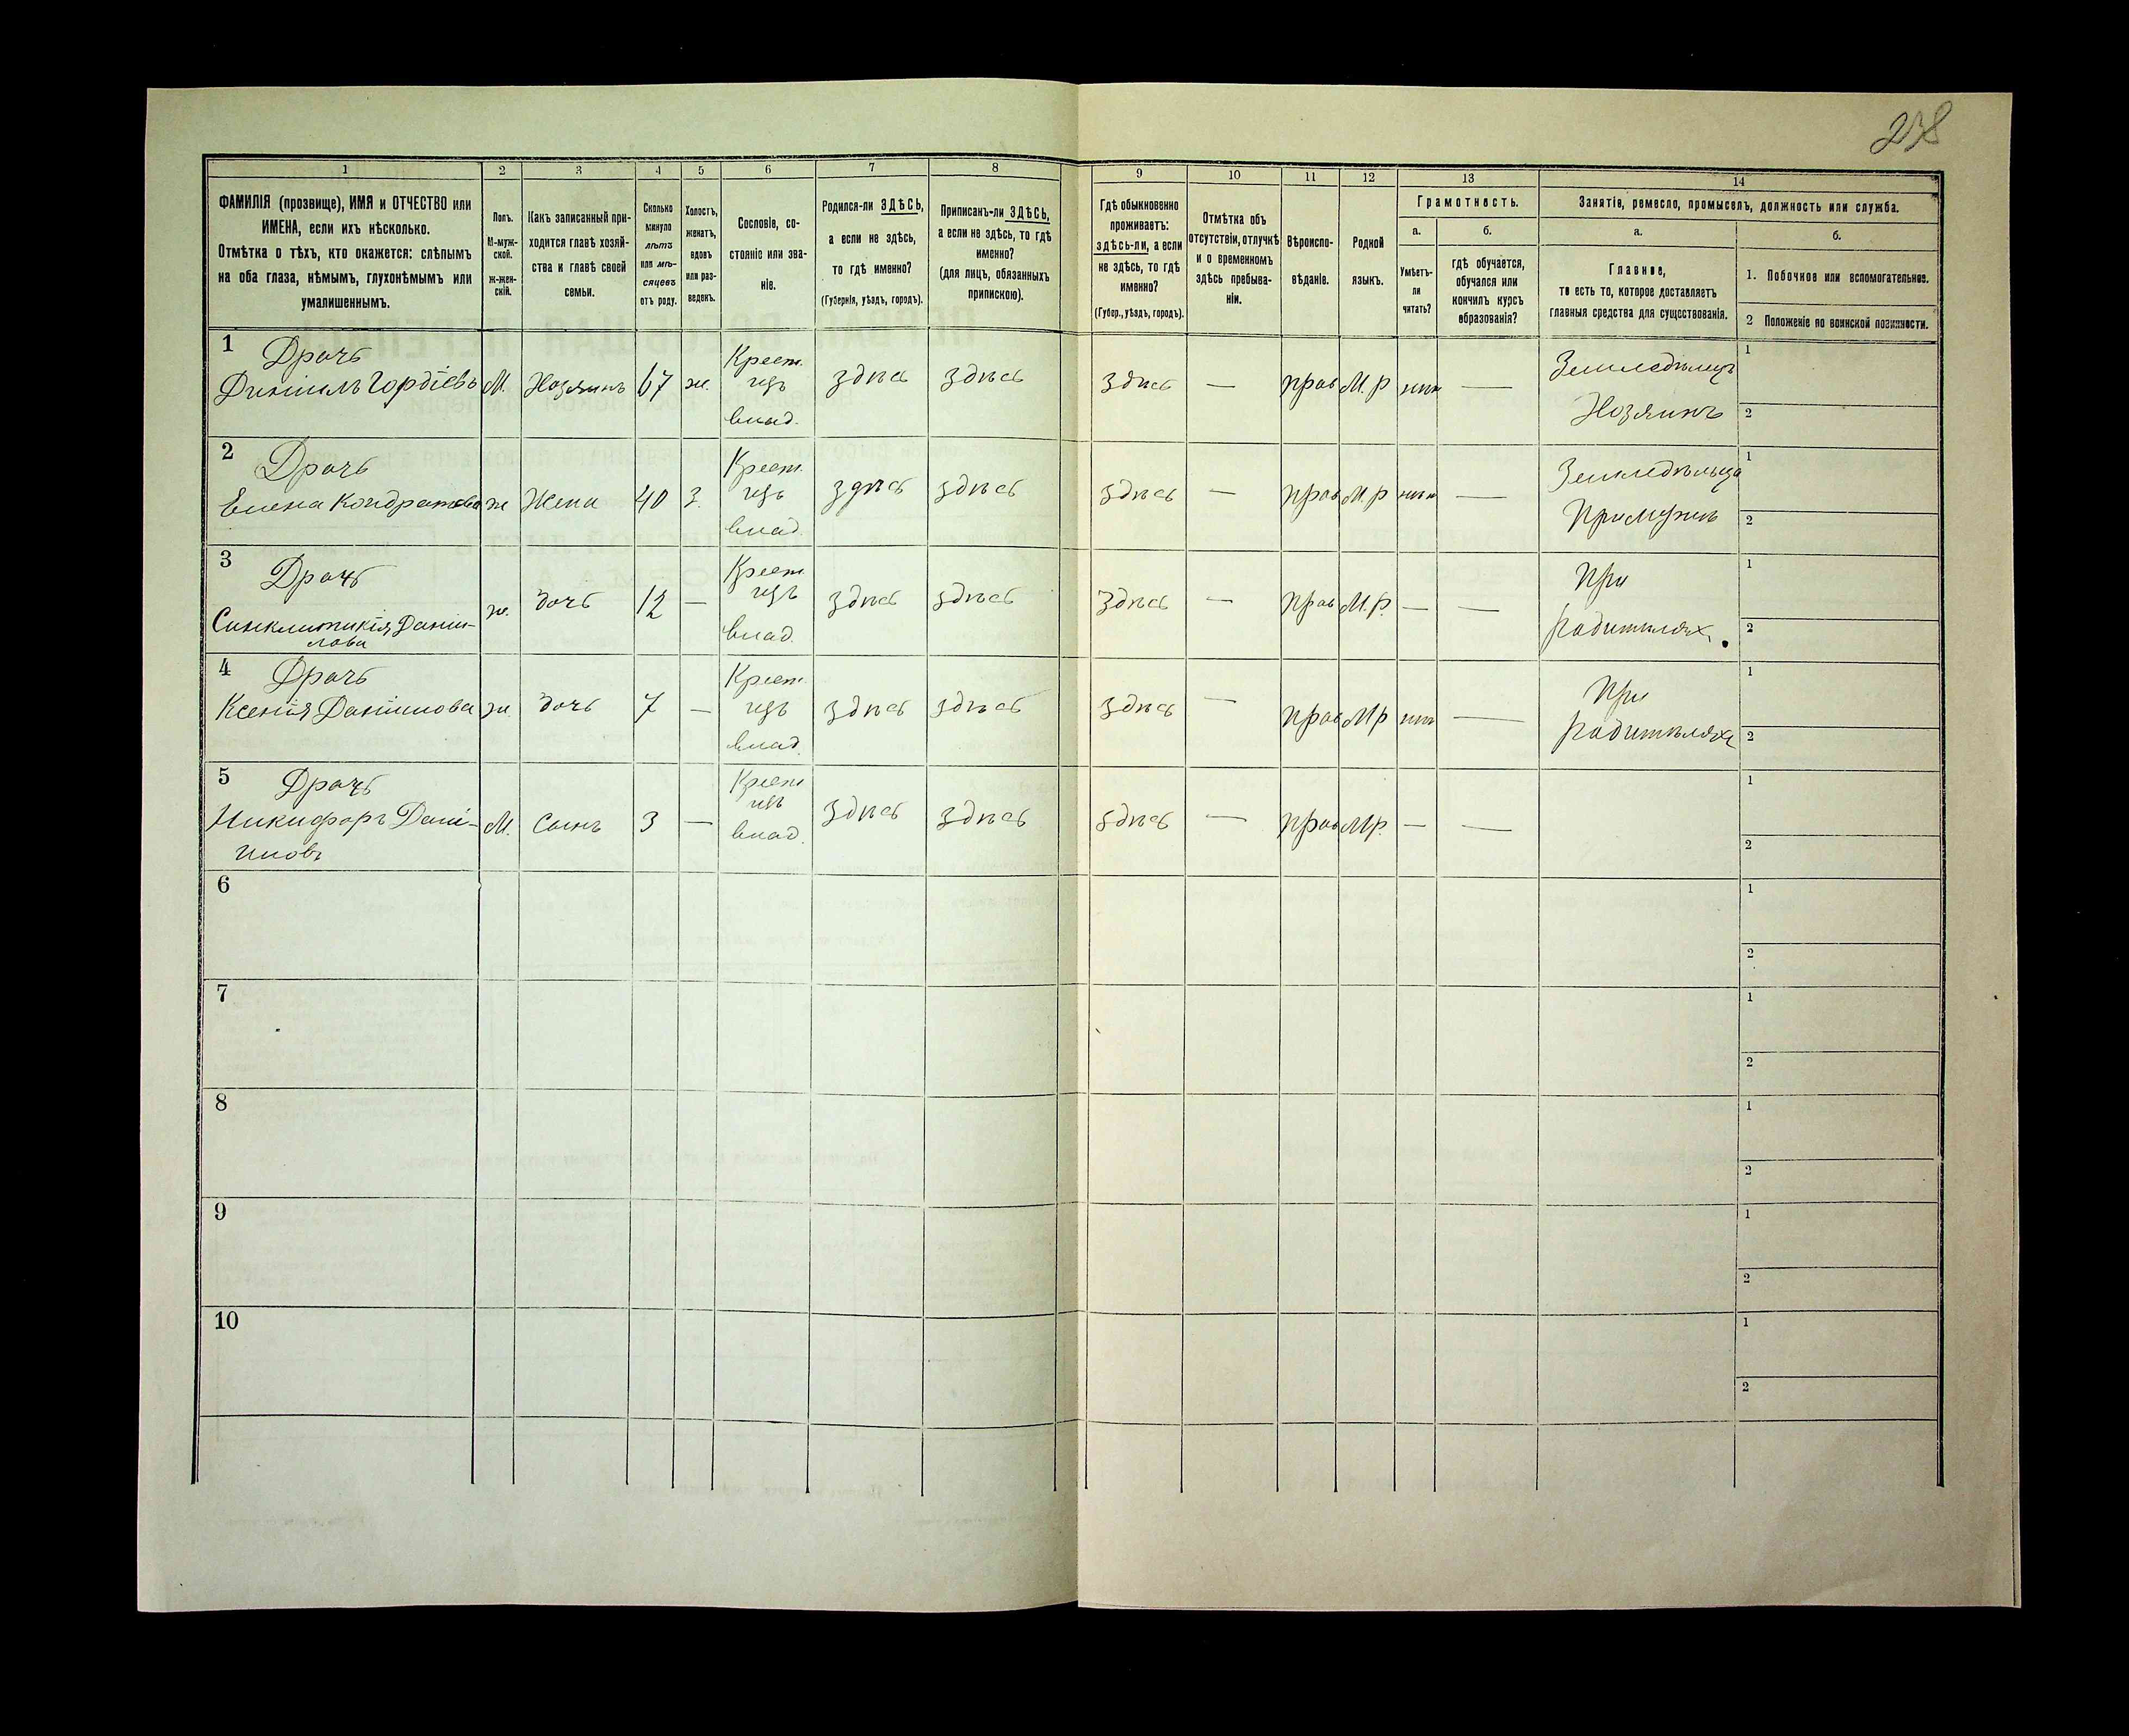 278
1
2
3
4
5
6
7
8
9
10
11
12
13
14
ФАМИЛІЯ (прозвище), ИМЯ и ОТЧЕСТВО или
ИМЕНА, если ихъ нѣсколько.
Отмѣтка о тѣхъ, кто окажется: слѣпымъ
на оба глаза, нѣмымъ, глухонѣмымъ или
умалишеннымъ.
Полъ.
М-муж-
ской.
ж-жен-
скій.
Какъ записанный при-
ходится главѣ хозяй-
ства и главѣ своей
семьи.
Сколько
минуло
лѣтъ
или мѣ-
сяцевъ
отъ роду.
Холостъ,
женатъ,
вдовъ
или раз-
веденъ.
Сословіе, со-
стояніе или зва-
ніе.
Родился-ли ЗДѢСЬ,
а если не здѣсь,
то гдѣ именно?
(Губернія, уѣздъ, городъ).
Приписанъ-ли ЗДѢСЬ,
а если не здѣсь, то гдѣ
именно?
(для лицъ, обязанныхъ
припискою).
Гдѣ обыкновенно
проживаетъ:
здѣсь-ли, а если
не здѣсь, то гдѣ
именно?
(Губер., уѣздъ, городъ).
Отмѣтка объ
отсутствіи, отлучкѣ
и о временномъ
здѣсь пребыва-
ніи.
Вѣроиспо-
вѣданіе.
Родной
языкъ.
Грамотность.
а.
Умѣетъ-
ли
читать?
б.
гдѣ обучается,
обучался или
кончилъ курсъ
образованія?
Занятіе, ремесло, промыселъ, должность или служба.
а.
Главное,
то есть то, которое доставляетъ
главныя средства для существованія.
б.
1. Побочное или вспомогательное.
2 Положеніе по воинской повинности.
1 Драчь
Даніилъ Гордіевъ М. Хозяинъ 67 ж. Крест. изъ влад. здѣсь здѣсь здѣсь — прав М.р нѣтъ — Земледѣлецъ Хозяинъ 1 2
2 Драчь
Елена Кондратова ж Жена 40 з. Крест. изъ влад. здѣсь здѣсь здѣсь — прав М.р нѣтъ — Земледѣльца При мужѣ 1 2
3 Драчь
Синклитикія Дании-
лова ж. дочь 12 — Крест изъ влад. здѣсь здѣсь здѣсь — прав М.р. — — При родителях. 1 2
4 Драчь
Ксенія Даніилова ж дочь 7 — Крест. изъ влад. здѣсь здѣсь здѣсь — прав М р нѣтъ — При родителяхъ 1 2
5 Драчь
Никифоръ Дані-
иловъ М. Сынъ 3 — Крест изъ влад. здѣсь здѣсь здѣсь — прав М.р. — — 1 2
6 1 2
7 1 2
8 1 2
9 1 2
10 1 2